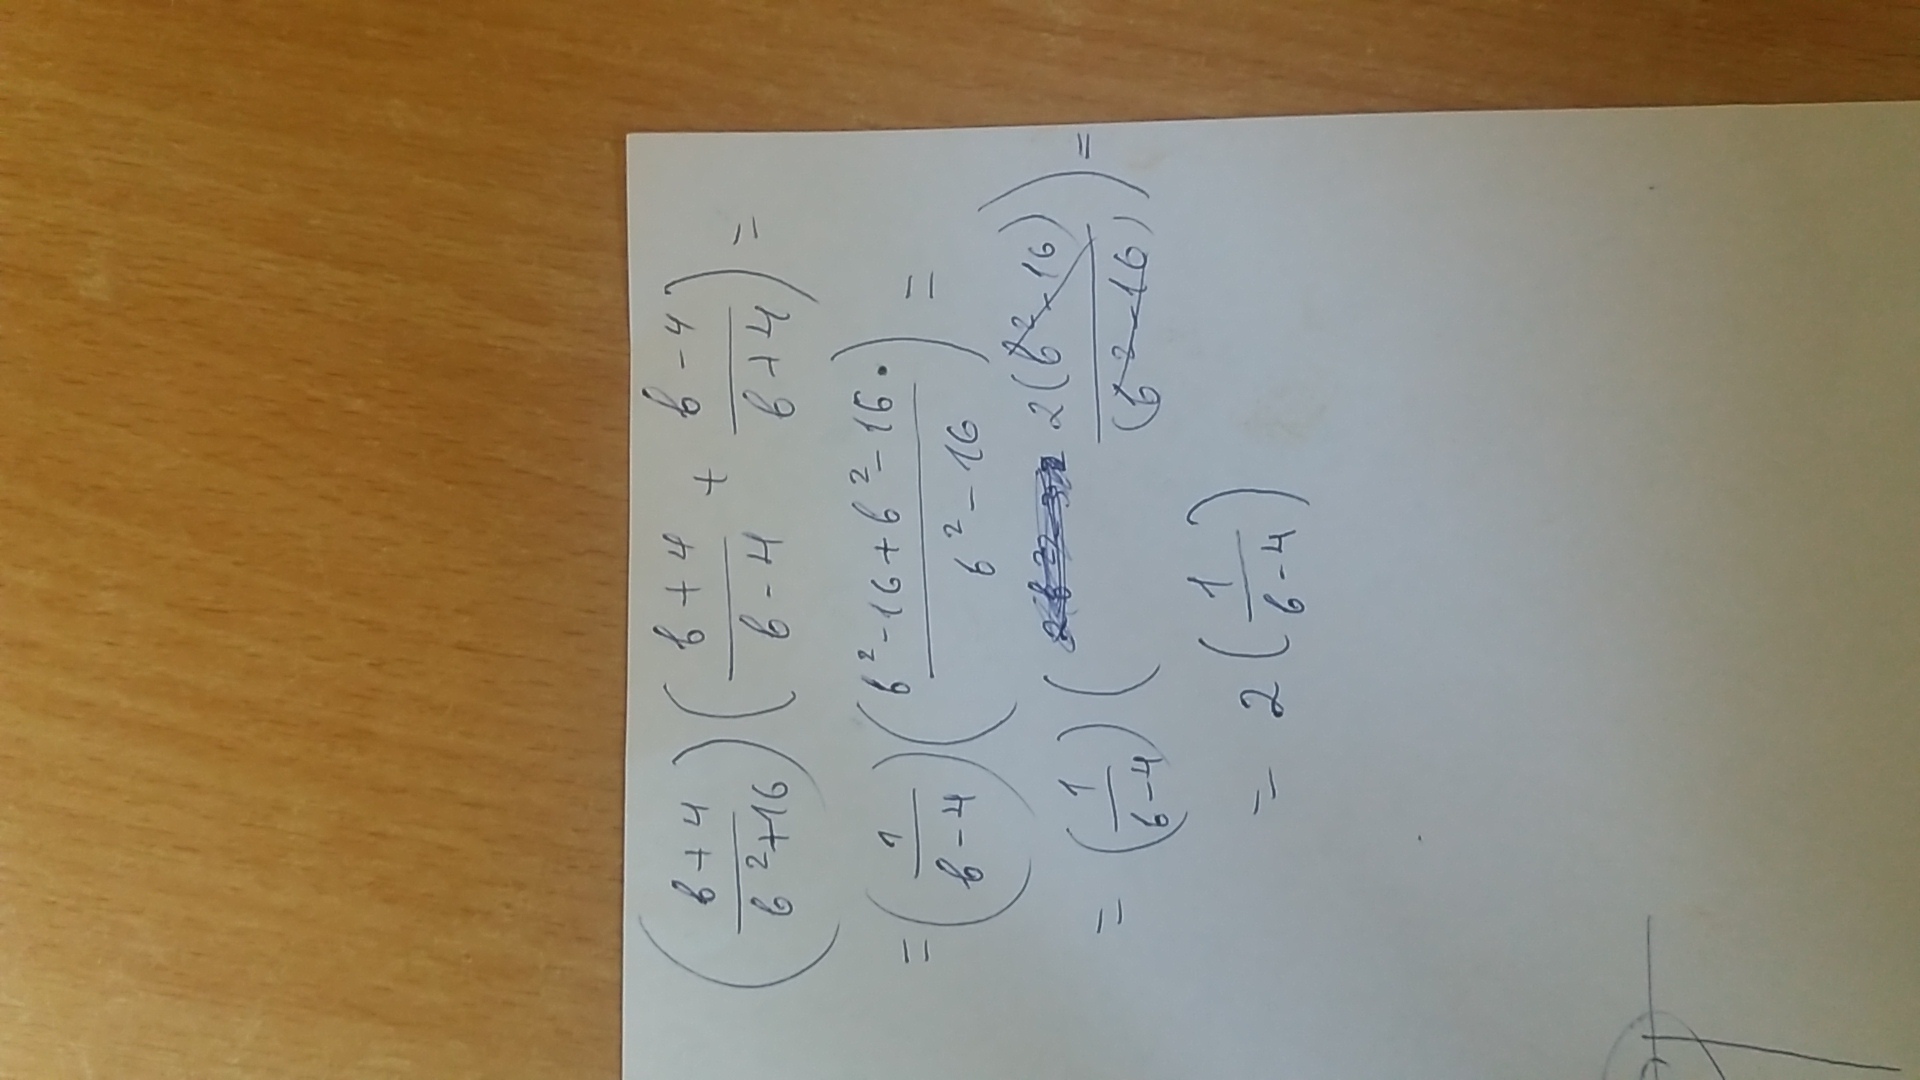 ((b+4)/(b²+16)) ((b+4)/(b-4) + (b-4)/(b+4)) =
= (1/(b-4)) ((b²-16+b²-16)/(b²-16)) =
= (1/(b-4)) (2(b²-16)/(b²-16)) =
= 2(1/(b-4))